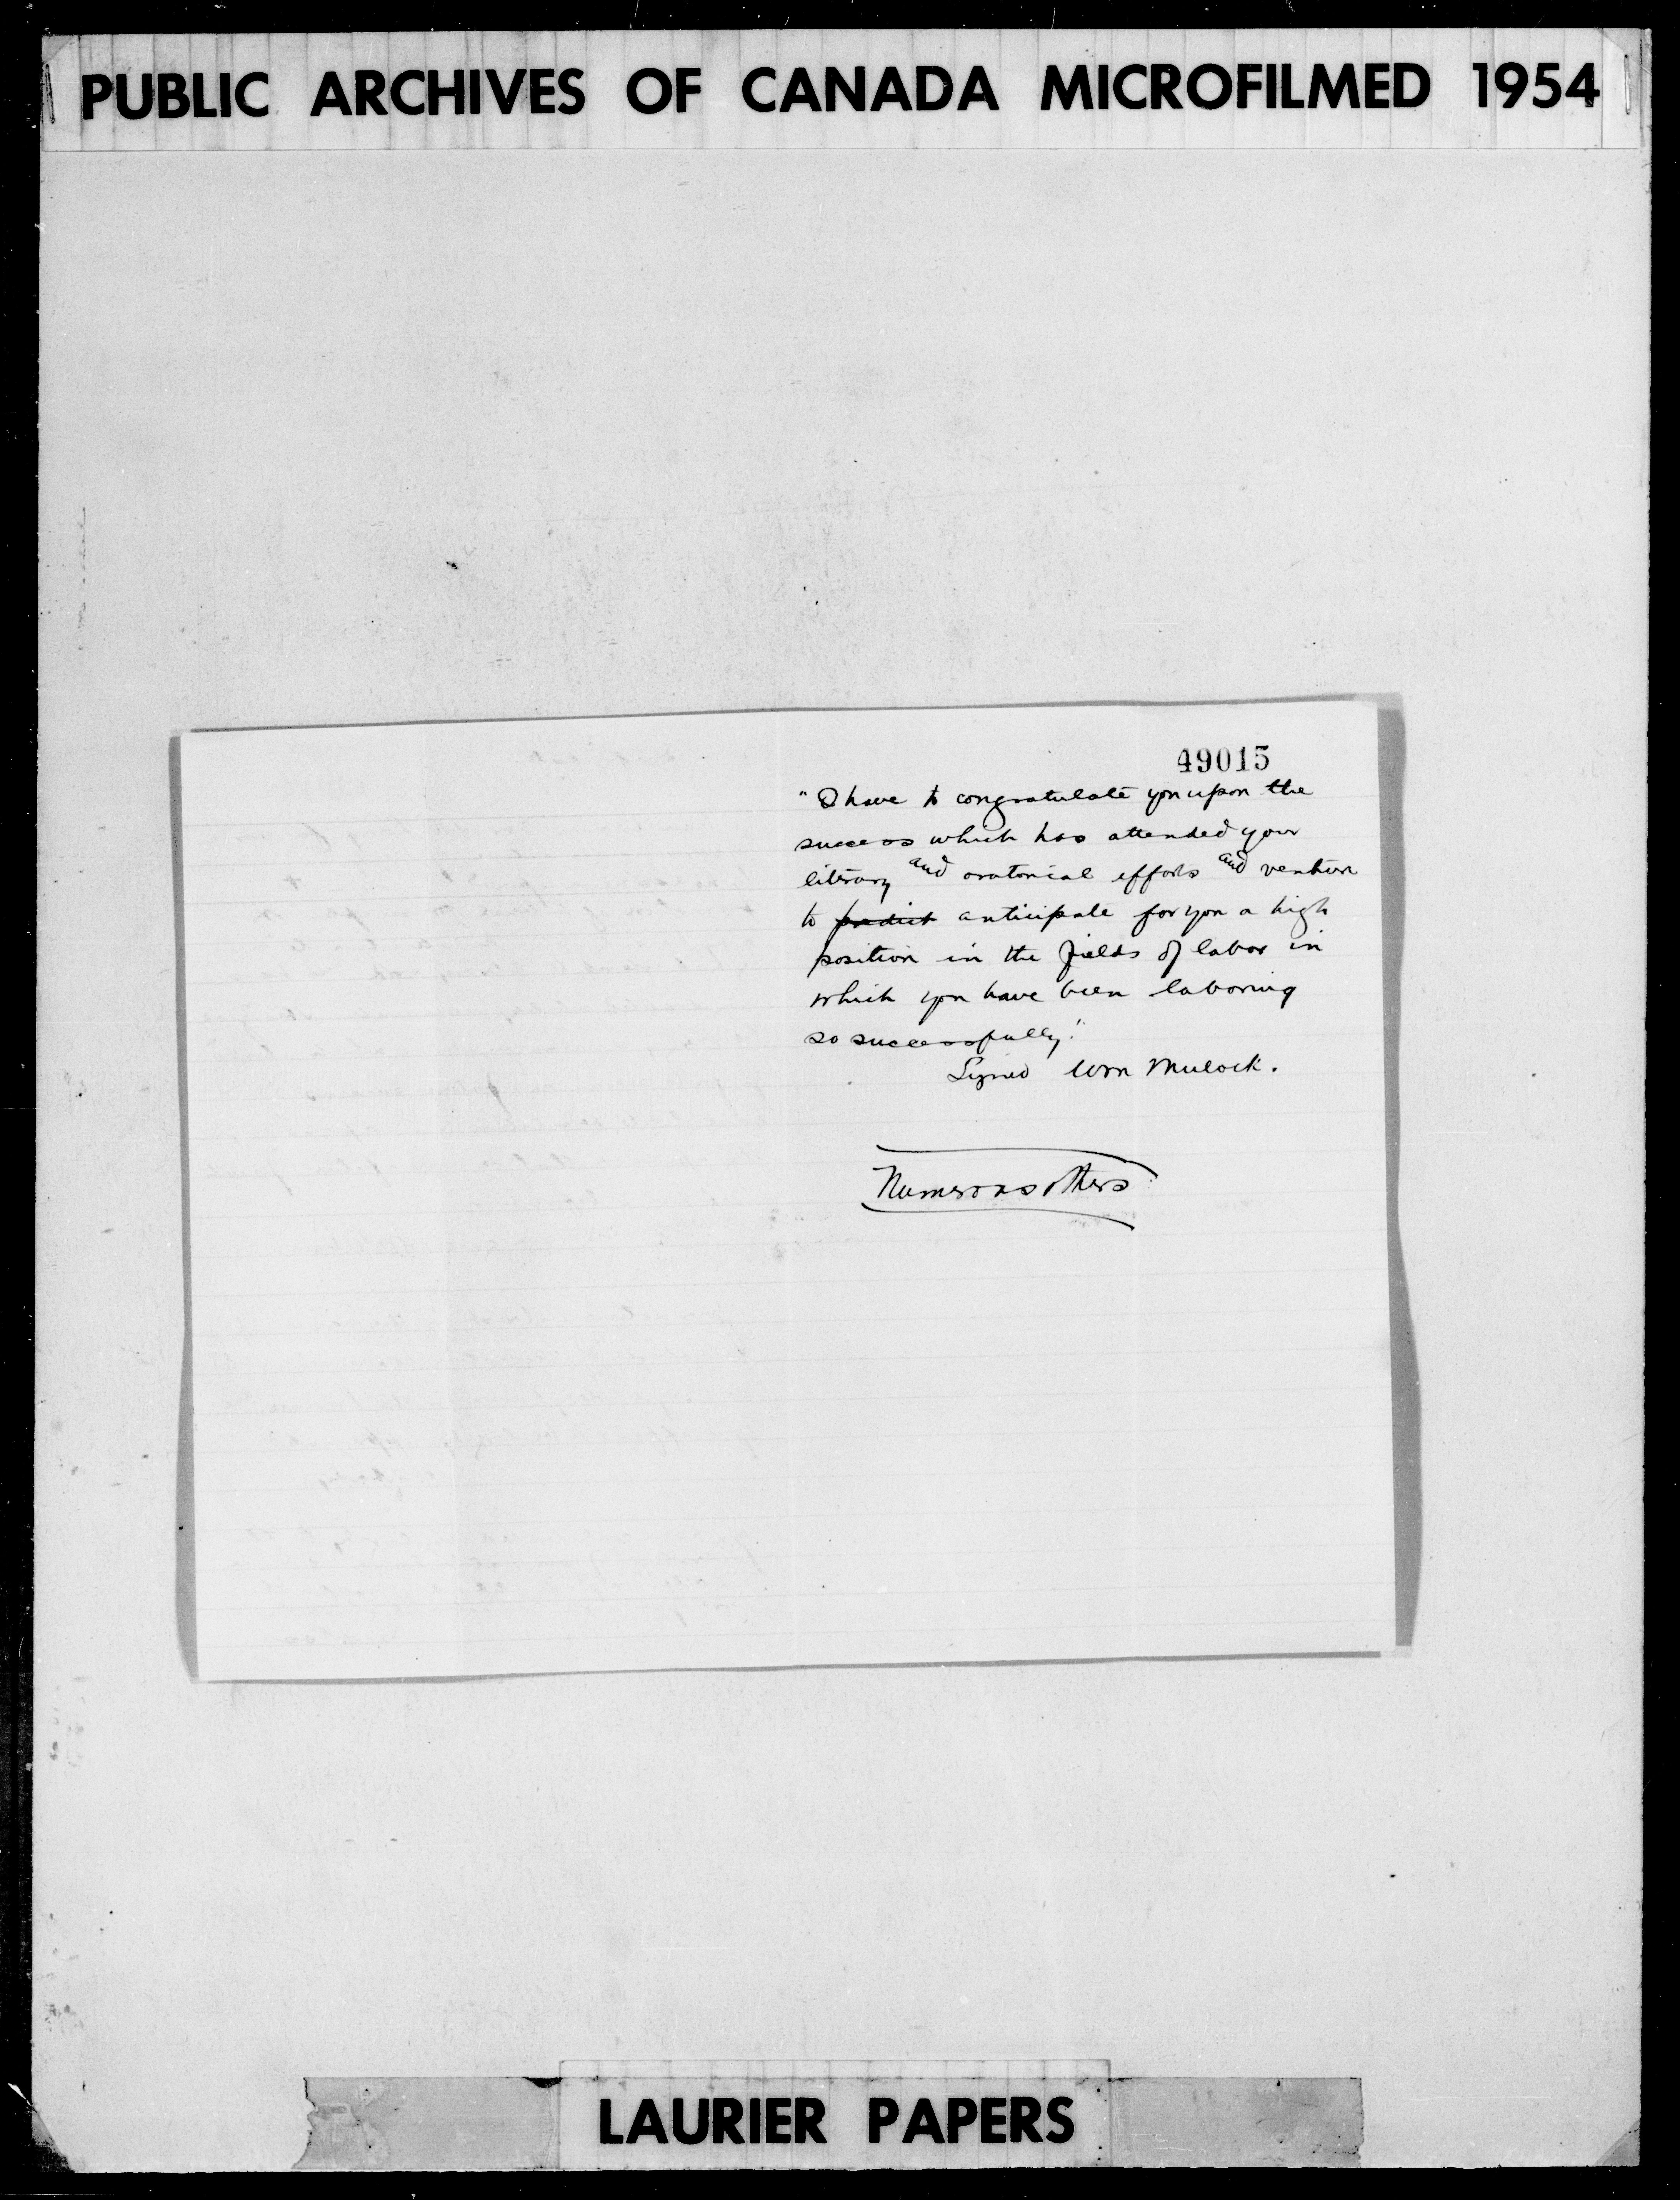 PUBLIC ARCHIVES OF CANADA MICROFILMED 1954
49015
"I have to congratulate you upon the
success which has attended your
literary and oratorical efforts and venture
to predict anticipate for you a high
position in the fields of labor in
which you have been laboring
so successfully."
Signed Wm Mulock.
Numerous others
LAURIER PAPERS